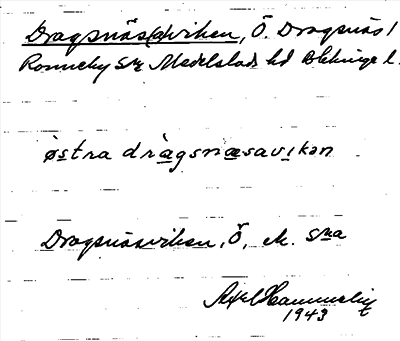 Dragsnäs(a)viken, Ö. Dragsnäs l
Ronneby Sn Medelstads hd Blekinge l.
östra dràgsnæsavikən
Dragsnäsviken, Ö, M. Sna
Axel Hammelin
1943